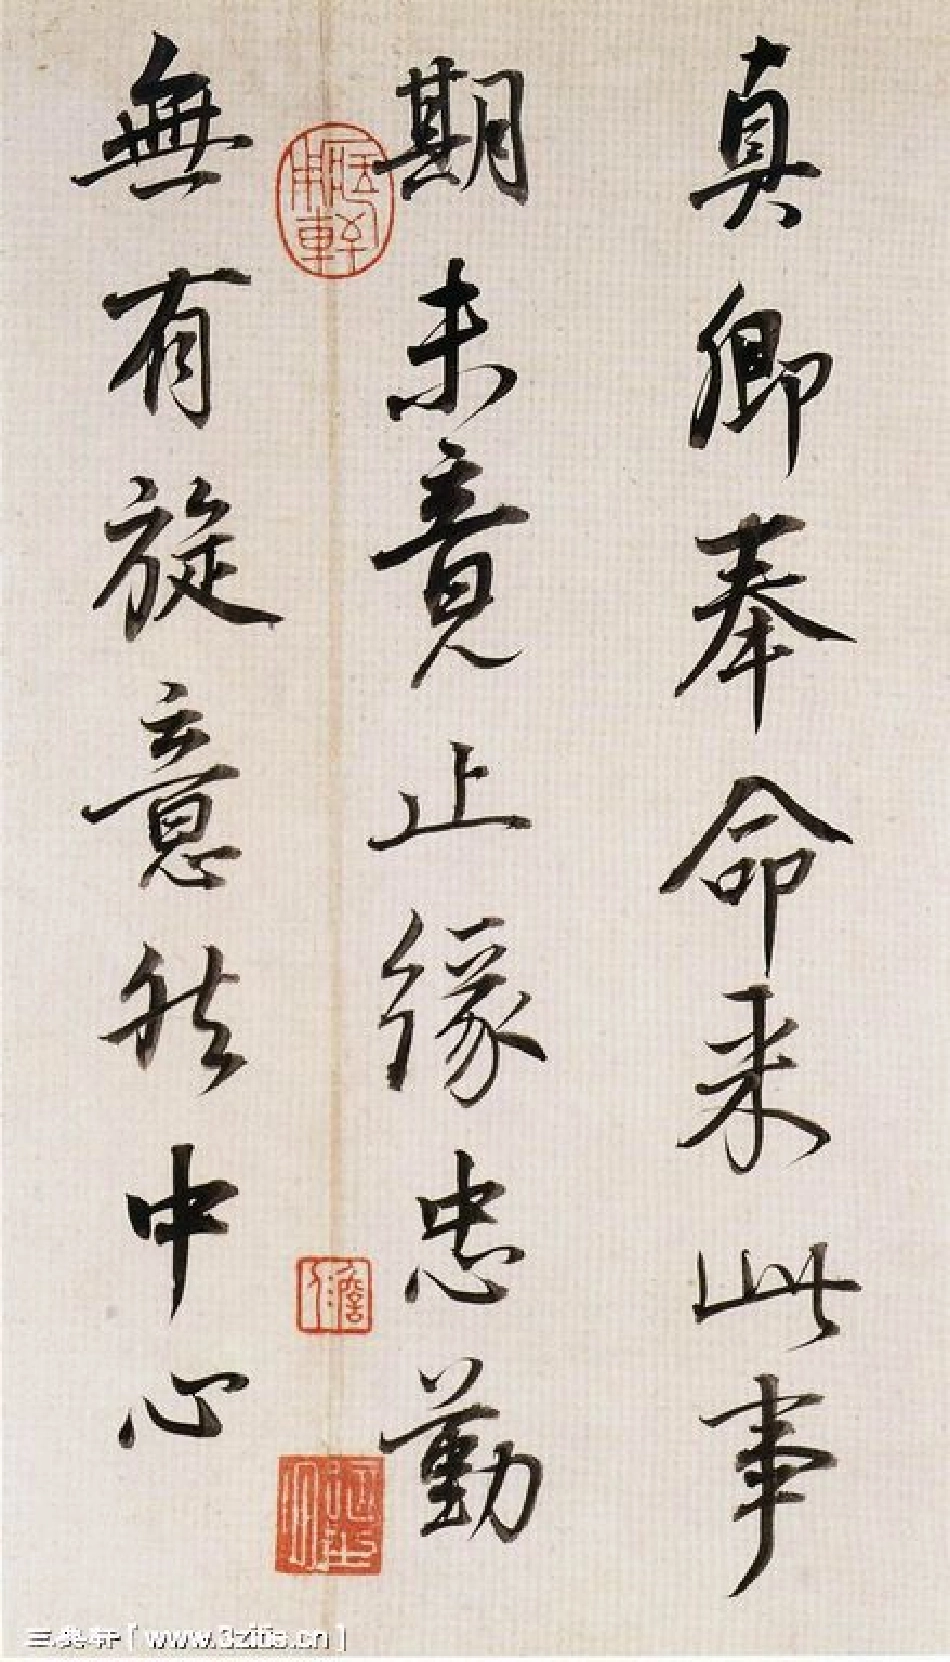 真卿奉命来此事
期未竟止缘忠勤
無有旋意然中心
www.3zitie.cn